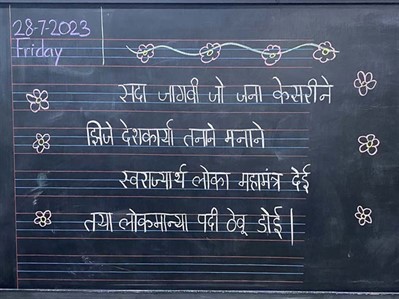 28-7-2023
Friday
सदा जागवी जो जना केसरीने
झिजे देशकार्या तनाने मनाने
स्वराज्यार्थ लोका महामंत्र देई
तया लोकमान्या पदी ठेवू डोई।